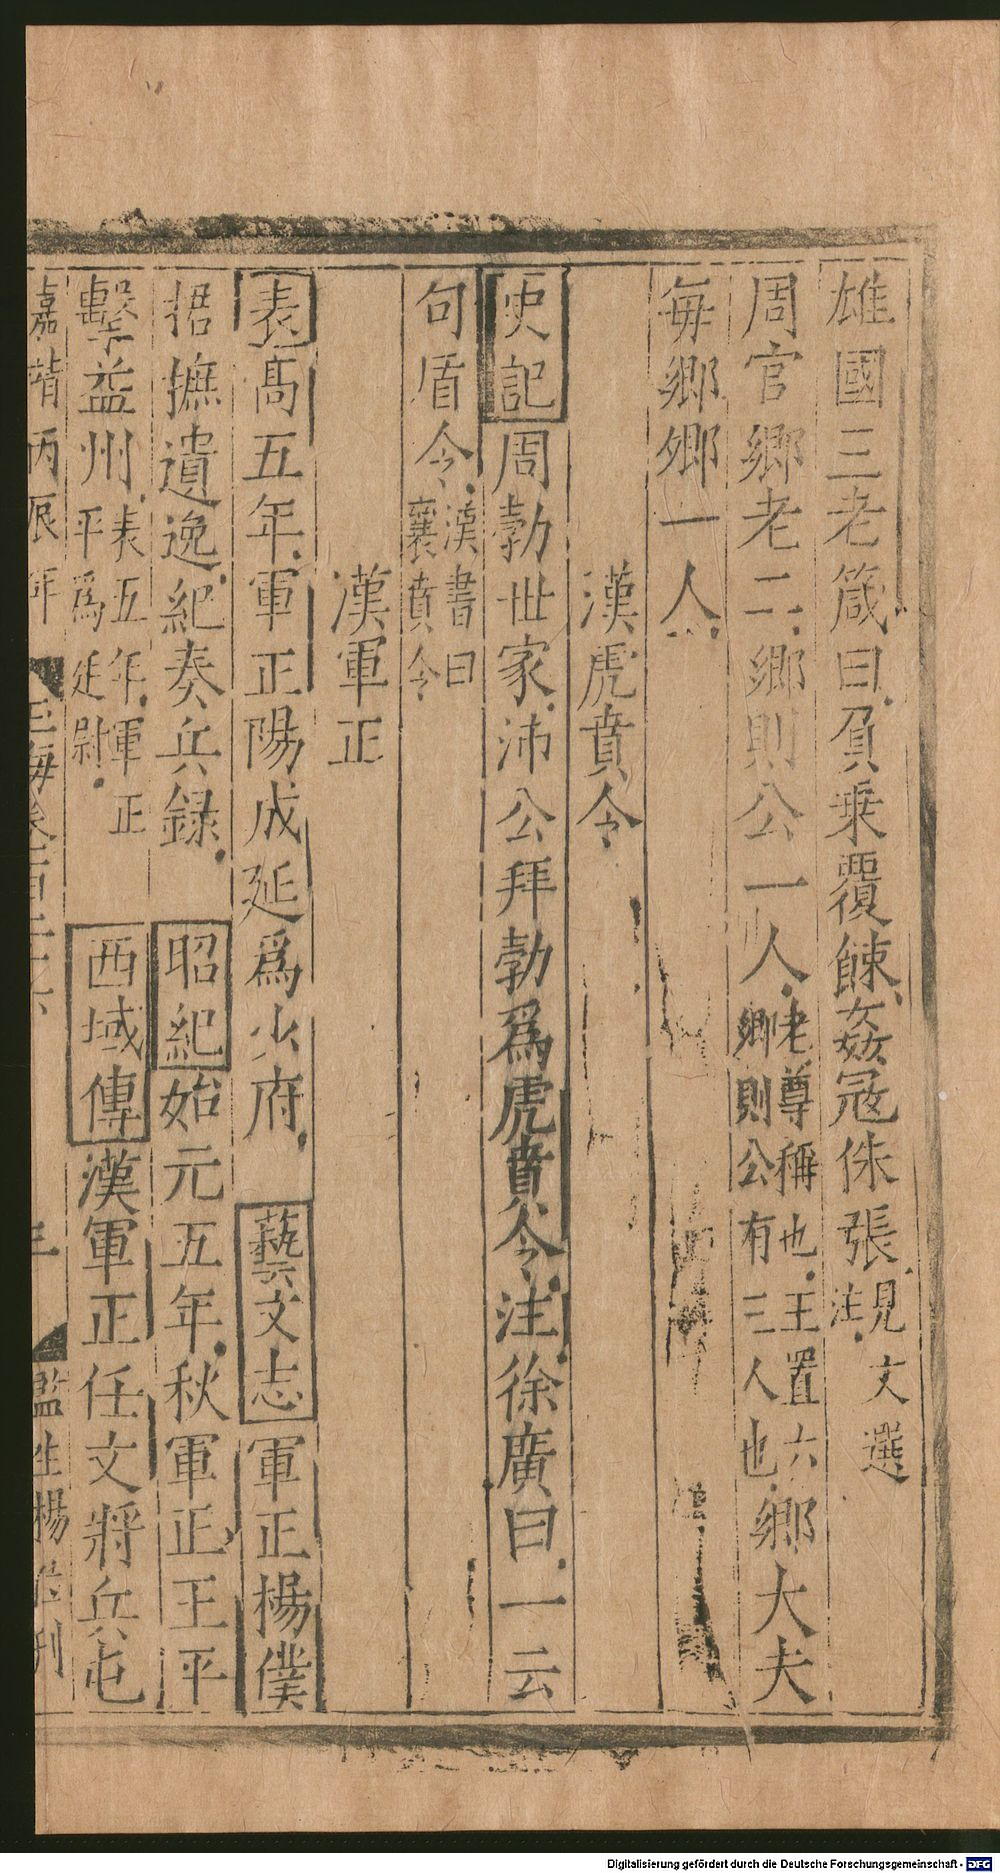 雄國三老箴曰負乘覆餗姦冦侏張見文選注
周官鄉老二鄉則公一人老尊稱也王置六鄉則公有三人也鄉大夫
每鄉卿一人
漢虎賁令
史記周勃世家沛公拜勃爲虎賁令注徐廣曰一云
句盾令漢書曰襄賁令
漢軍正
表高五年軍正陽成延爲少府藝文志軍正楊僕
捃摭遺逸紀奏兵錄昭紀始元五年秋軍正王平
擊益州表五年軍正平爲廷尉西域傳漢軍正任文將兵屯
嘉靖丙辰年 玉海卷一百三十六 三 監生楊 刊
Digitalisierung gefördert durch die Deutsche Forschungsgemeinschaft - DFG